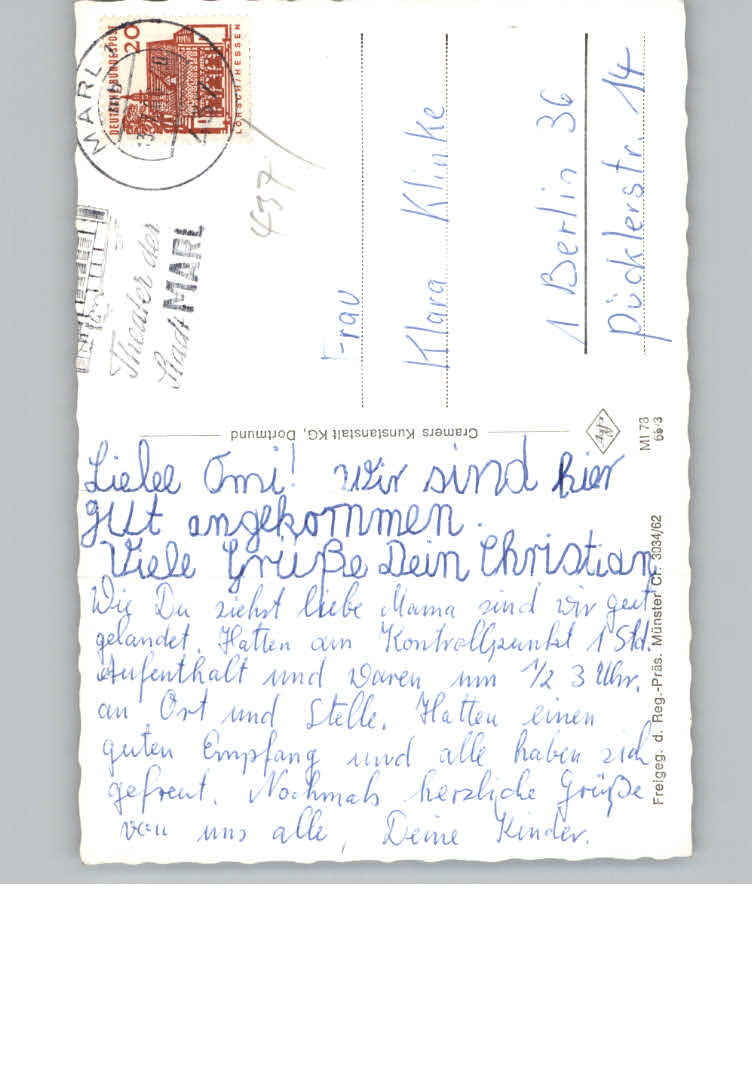 Liebe Omi! Wir sind hier
gut angekommen.
Viele Grüße Dein Christian
Wie Du siehst liebe Mama sind wir gut
gelandet. Hatten am Kontrollpunkt 1 Std.
Aufenthalt und waren um 1/2 3 Uhr.
an Ort und Stelle. Hatten einen
guten Empfang und alle haben sich
gefreut. Nochmals herzliche Grüße
von uns alle, Deine Kinder.
Frau
Klara Klinke
1 Berlin 36
Pücklerstr. 14
DEUTSCHE BUNDESPOST
20
LORSCH/HESSEN
MARL
Theater der
Stadt MARL
437
Cramers Kunstanstalt KG, Dortmund
MI 73
Freigeg. d. Reg.-Präs. Münster Cr. 3034/62